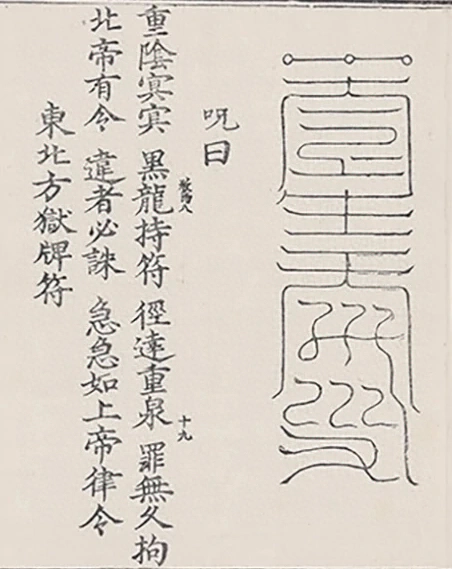 呪曰
重陰㝠㝠 黑龍持符 徑達重泉 罪無久拘
十九
北帝有令 違者必誅 急急如上帝律令
東北方獄牌符